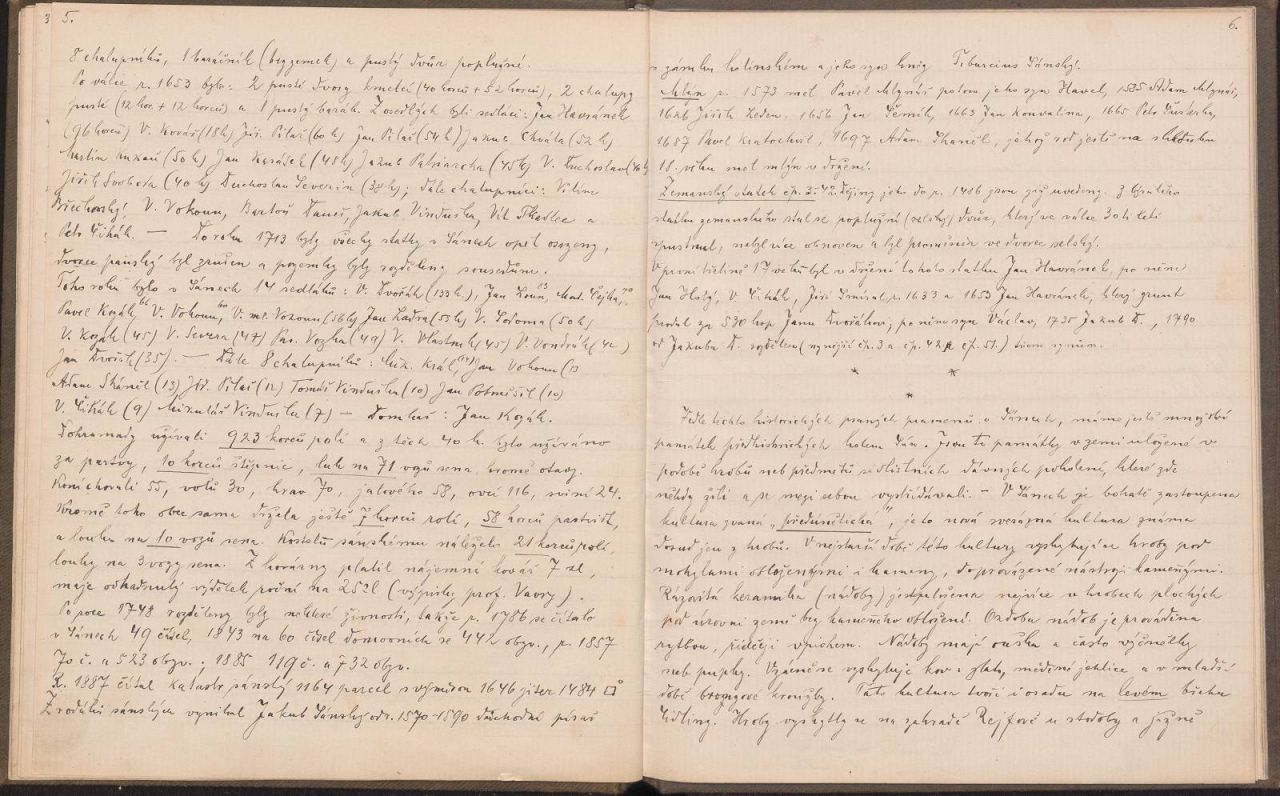 5.
8 chalupníků, 1 baráčník (bezzemek) a pustý dvůr poplužní.
Po válce r. 1653 bylo: 2 pusté dvory kmetcí (40 korců + 52 korců), 2 chalupy
pusté (12 kor. + 12 korců) a 1 pustý barák. Z osedlých byli sedláci: Jan Havránek
(96 korců) V. Kovář (18 k) Jiř. Pilař (60 k) Jan Pilař (54 k) Jakub Chvála (52 k)
Martin (50 k) Jan Karásek (48 k) Jakub Patriarcha (45 k) V. Duchoslav
Jiřík Svoboda (40 k) Duchoslav Severin (38 k); dále chalupníci: Vilém
Břechovský, V. Vokoun, Bartoš Daneš, Jakub Vinduška, Vít Tkadlec a
Petr Čihák. — Do roku 1713 byly všechny statky v Sánech opět osazeny,
dvorec panský byl zrušen a pozemky byly rozděleny sousedům.
Toho roku bylo v Sánech 14 sedláků: V. Dvořák (133 k.), Jan 83, Mat. Čejka, 70
Pavel Kozák, 66 V. Vokoun, 60 V. ml. Vokoun (56 k) Jan Kadra (55 k) V. Sodoma (50 k)
V. Kozák (45) V. Severa (47) Pav. Vozka (49) V. Vlastník (45) V. Vondrák (42)
Jan Dvořák (35). — Dále 8 chalupníků: Mik. Král, (14) Jan Vokoun (13
Adam Skániel (13) Jiř. Pilař (12) Tomáš Vinduška (10) Jan Potměšil (10)
V. Čihák (9) Mikuláš Vinduška (7) — Domkář: Jan Kozák.
Dohromady užívali 923 korců polí a z těch 40 k. bylo užíváno
za parávy, 10 korců štěpnic, luk na 71 vozů sena kromě otavy.
Koní chovali 55, volů 30, krav 70, jalového 58, ovcí 116, sviní 24.
Kromě toho obec sama držela ještě 7 korců polí, 58 korců pastvišť,
a louku na 10 vozů sena. Kostelu sánskému náleželo 21 korců polí,
louky na 3 vozy sena. Z kovárny platil nájemní kovář 7 zl,
maje odhadnutý výdělek roční na 25 zl (výpisky prof. Vávry).
Po roce 1748 rozděleny byly některé živnosti, takže r. 1786 se čítalo
v Sánech 49 čísel, 1843 na 60 čísel domovních se 442 obyv., r. 1857
70 č. a 523 obyv.; 1885 119 č. a 732 obyv.
R. 1887 čítal katastr sánský 1164 parcel s výměrou 1646 jiter 1484 □°
Z rodáků sánských vynikal Jakub Sánský od r. 1570–1590 důchodní písař
6.
v zámku kolínském a jeho syn kněz Tiburcius Sánský.
Mlýn r. 1573 měl Pavel Mlynář potom jeho syn Havel, 1585 Adam Mlynář,
1626 Jiřík Leden, 1656 Jan Černík, 1663 Jan Konvalina, 1665 Petr
1687 Pavel Kratochvíl, 1697 Adam Skaniel, jehož rod ještě na sklonku
18. věku měl mlýn v držení.
Zemanský statek čp. 3. 42. Dějiny jeho do r. 1486 jsou již uvedeny. Z bývalého
statku zemanského stal se poplužní (selský) dvůr, který ve válce 30ti leté
spustnul, nebyl více obnoven a byl proměněn ve dvorec selský.
V první třetině 17 věku byl v držení tohoto statku Jan Havránek, po něm
Jan Holý, V. Čihák, Jiří r. 1633 a 1653 Jan Havránek, který grunt
prodal za 530 kop Janu Dvořákovi; po něm syn Václav, 1735 Jakub D., 1790
od Jakuba D. rozdělen (nynější čp. 3 a čp. 42 a čp. 51.) třem synům.
* *
*
Vedle těchto historických psaných pramenů o Sánech, máme ještě množství
památek předhistorických kolem Sán. Jsou to památky v zemi uložené v
podobě hrobů neb předmětů sídlištních dávných pokolení, které zde
někdy žili a se mezi sebou vystřídávali. — V Sánech je bohatě zastoupena
kultura zvaná „předúnětická“, je to nová svérázná kultura známá
dosud jen z hrobů. V nejstarší době této kultury vyskytují se hroby pod
mohylami obloženými i kameny, doprovázené nástroji kamennými.
Rázovitá keramika (nádoby) jest uložena nejvíce v hrobech plochých
pod úrovní země bez kamenného obložení. Ozdoba nádob je prováděna
rytbou, řidčeji vpichem. Nádoby mají ouška a často výčnělky
neb pupky. Vzácně se vyskytuje kov: zlato, měděné jehlice a v mladší
době bronzové kroužky. Tato kultura tvoří i osadu na levém břehu
Cidliny. Hroby vyskytly se na zahradě Rejfově u stodoly a jižně